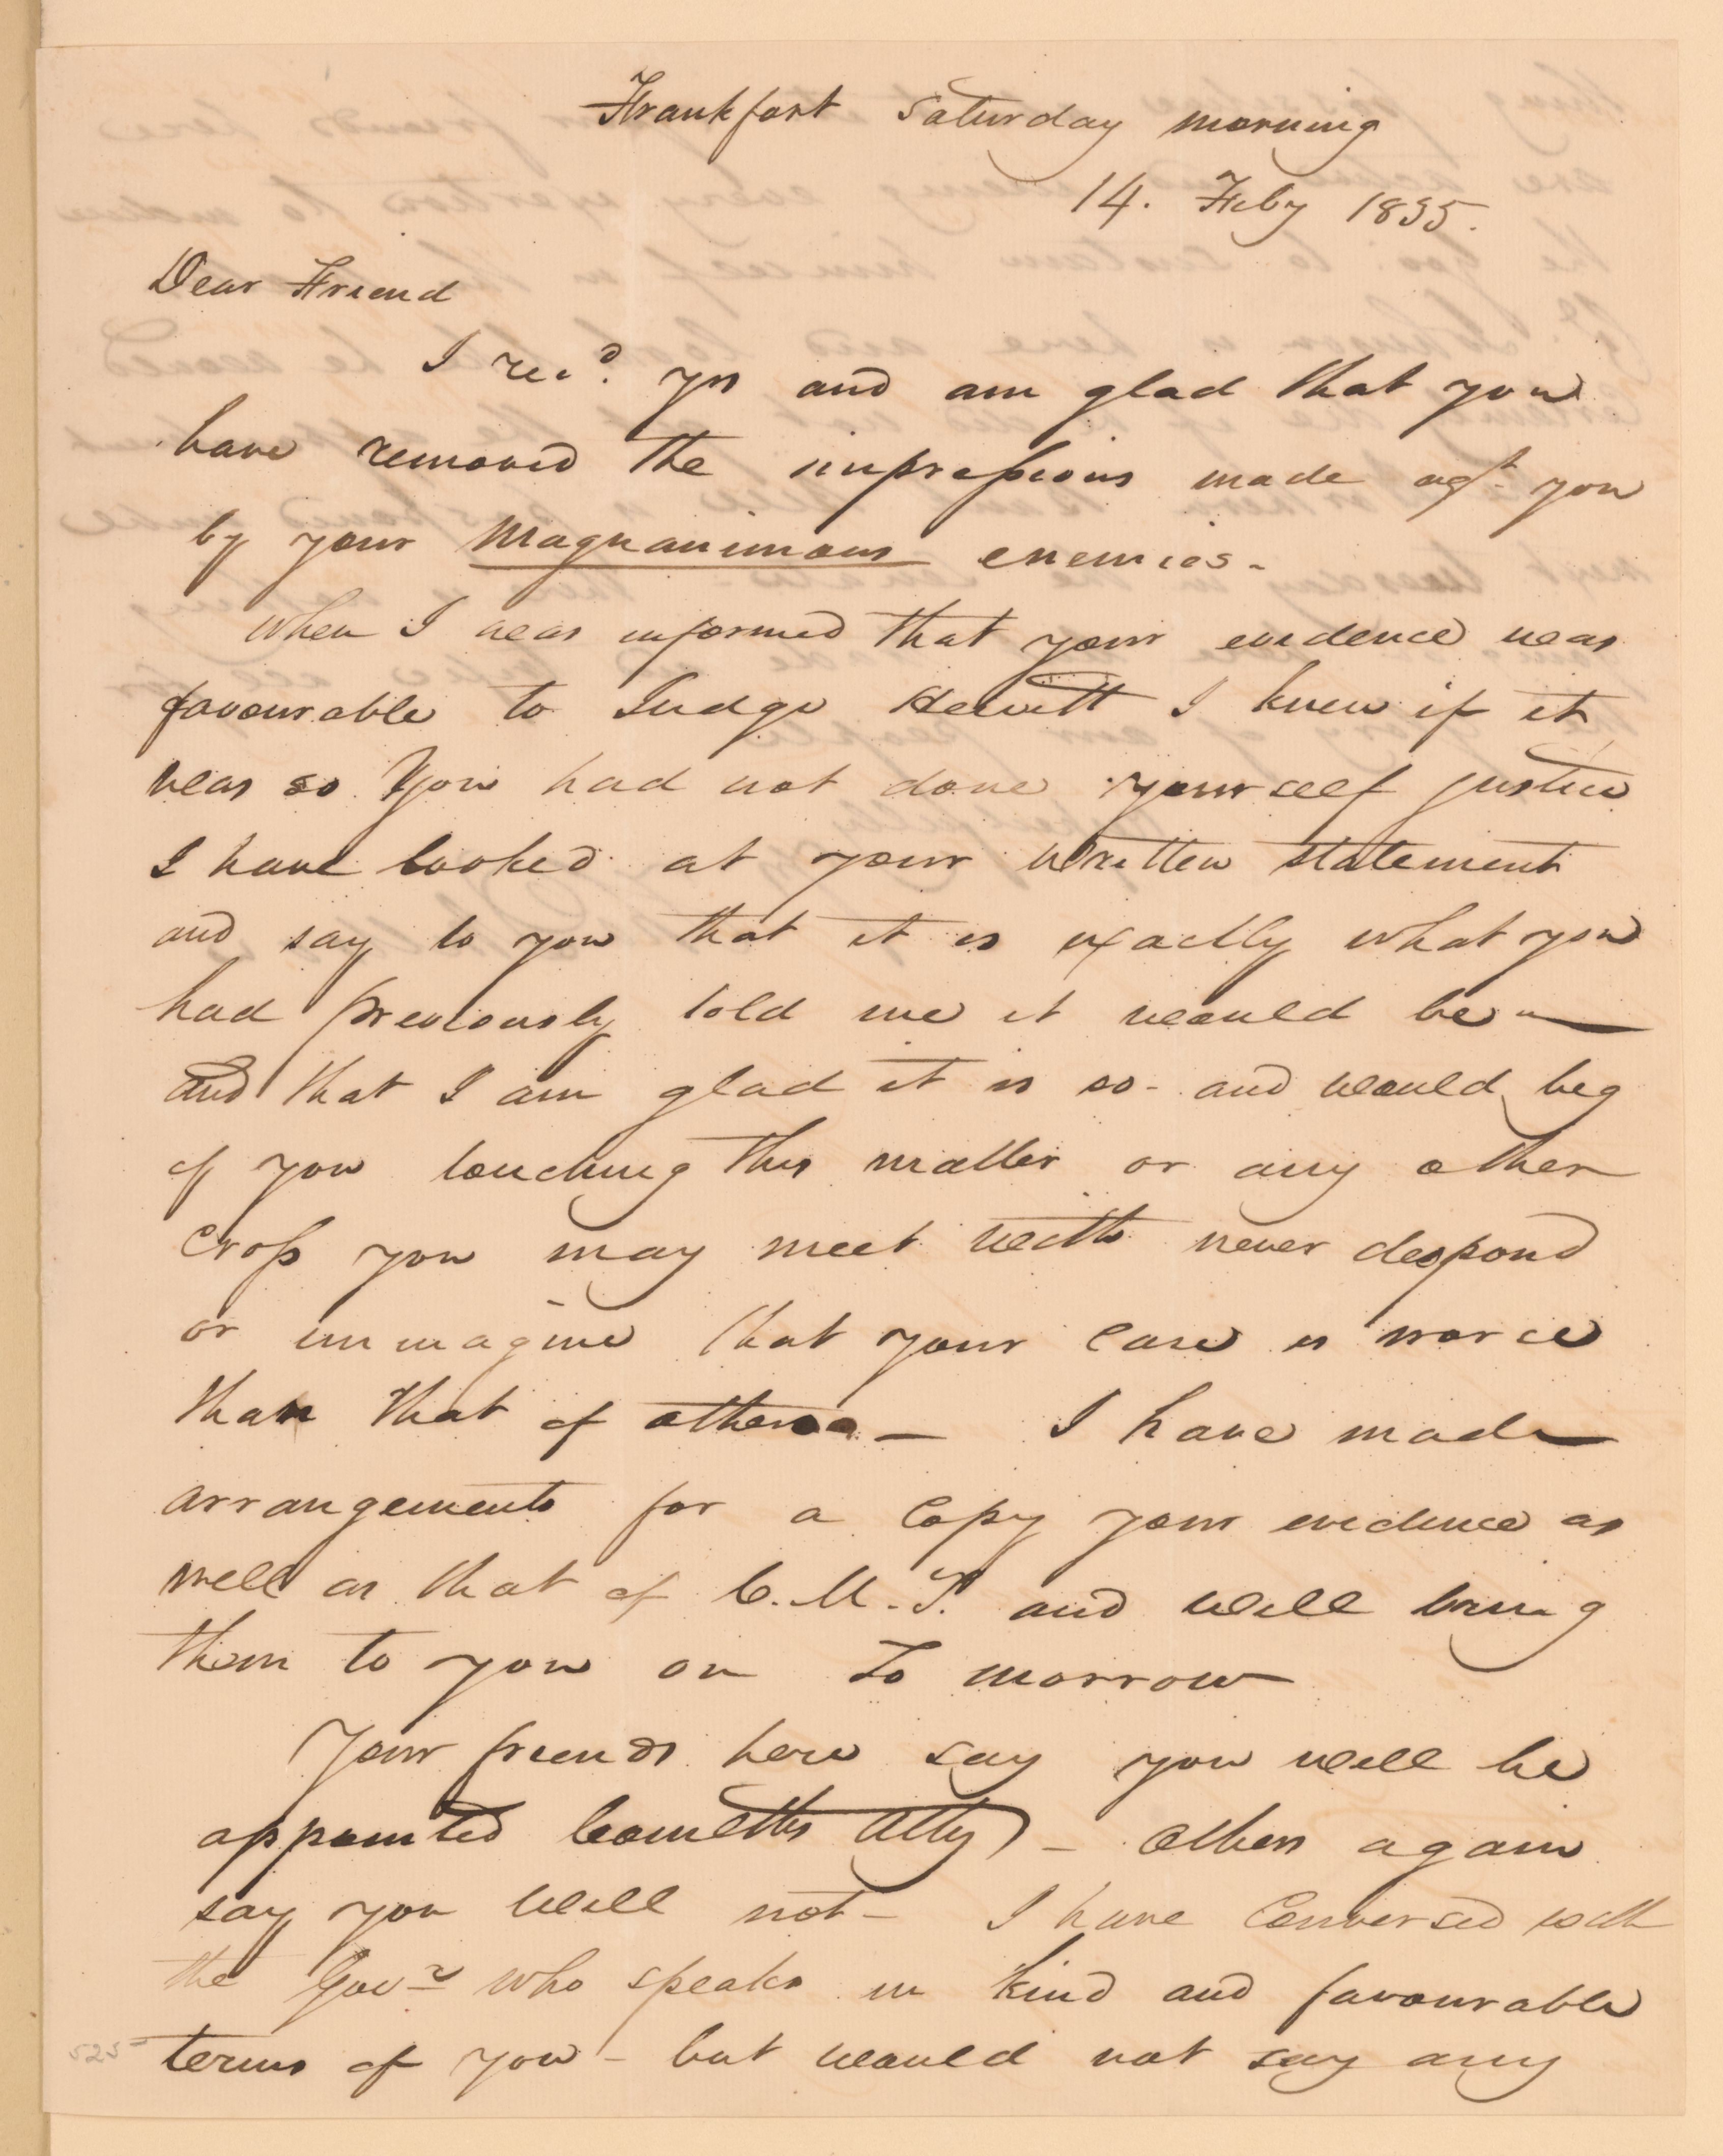 Frankfort Saturday morning
14. Feby 1835.
Dear Friend
I recd. yrs and am glad that you
have removed the impressions made agt you
by your Magnanimous enemies-
When I was informed that your evidence was
favourable to Judge Hewitt I knew if it
was so you had not done yourself justice
I have looked at your written statement
and say to you that it is exactly what you
had previously told me it would be -
and that I am glad it is so - and would beg
of you touching this matter or any other
cross you may meet with never despond
or immagine that your case is worce
than that of others - I have made
arrangements for a Copy your evidence as
well as that of C. M. T. and will bring
them to you on To morrow
Your friends here say you will be
appointed Comlths Atty - others again
say you will not - I have conversed with
the Govr who speaks in kind and favourable
terms of you - but would not say any
525